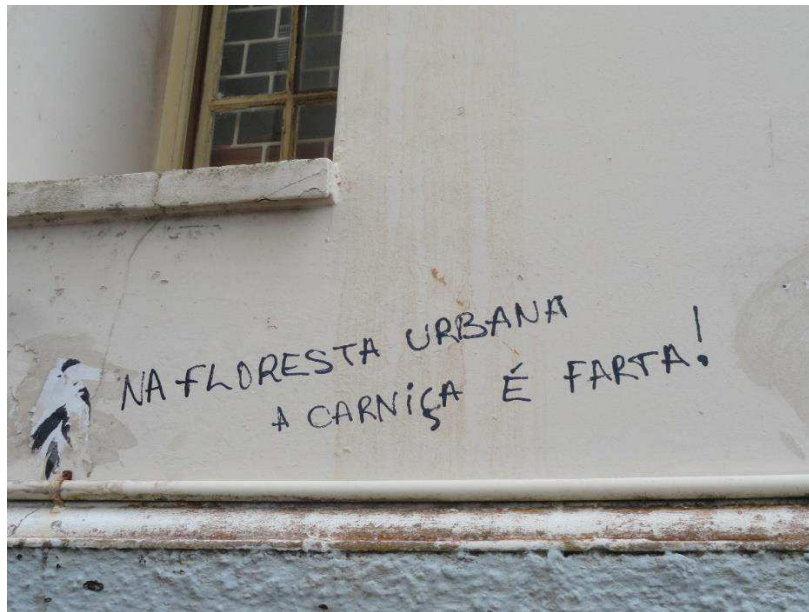 NA FLORESTA URBANA
A CARNIÇA É FARTA!